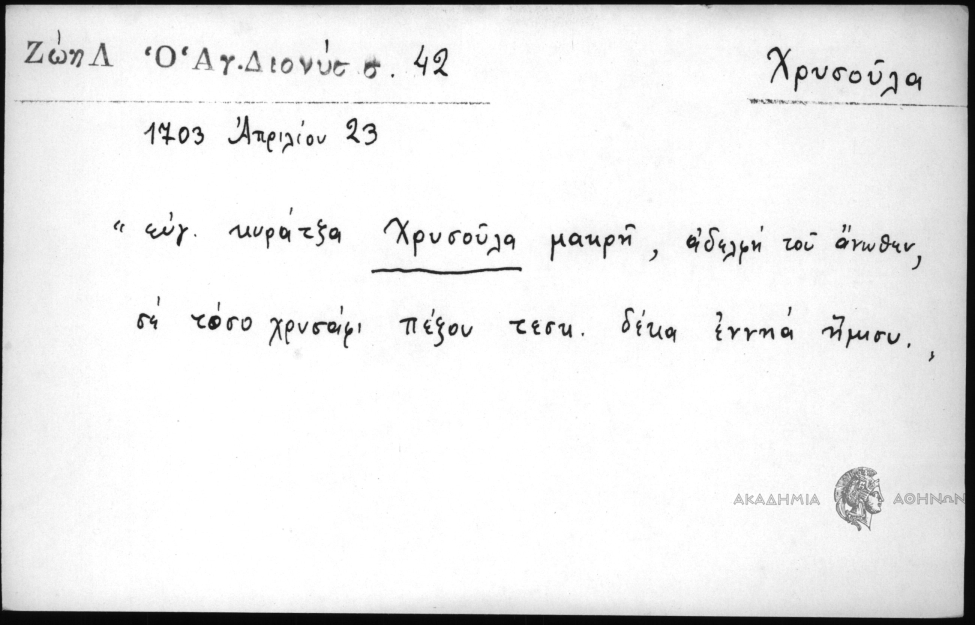 Ζώη Λ Ὁ Ἁγ. Διονύσ σ. 42
Χρυσοῦλα
1703 Ἀπριλίου 23
" εὐγ. κυράτζα Χρυσοῦλα μακρῆ, ἀδελφή τοῦ ἄνωθεν,
σέ τόσο χρυσάφι πέζου τεσκ. δέκα ἐννηά ἥμισυ. ,
ΑΚΑΔΗΜΙΑ ΑΘΗΝΩΝ